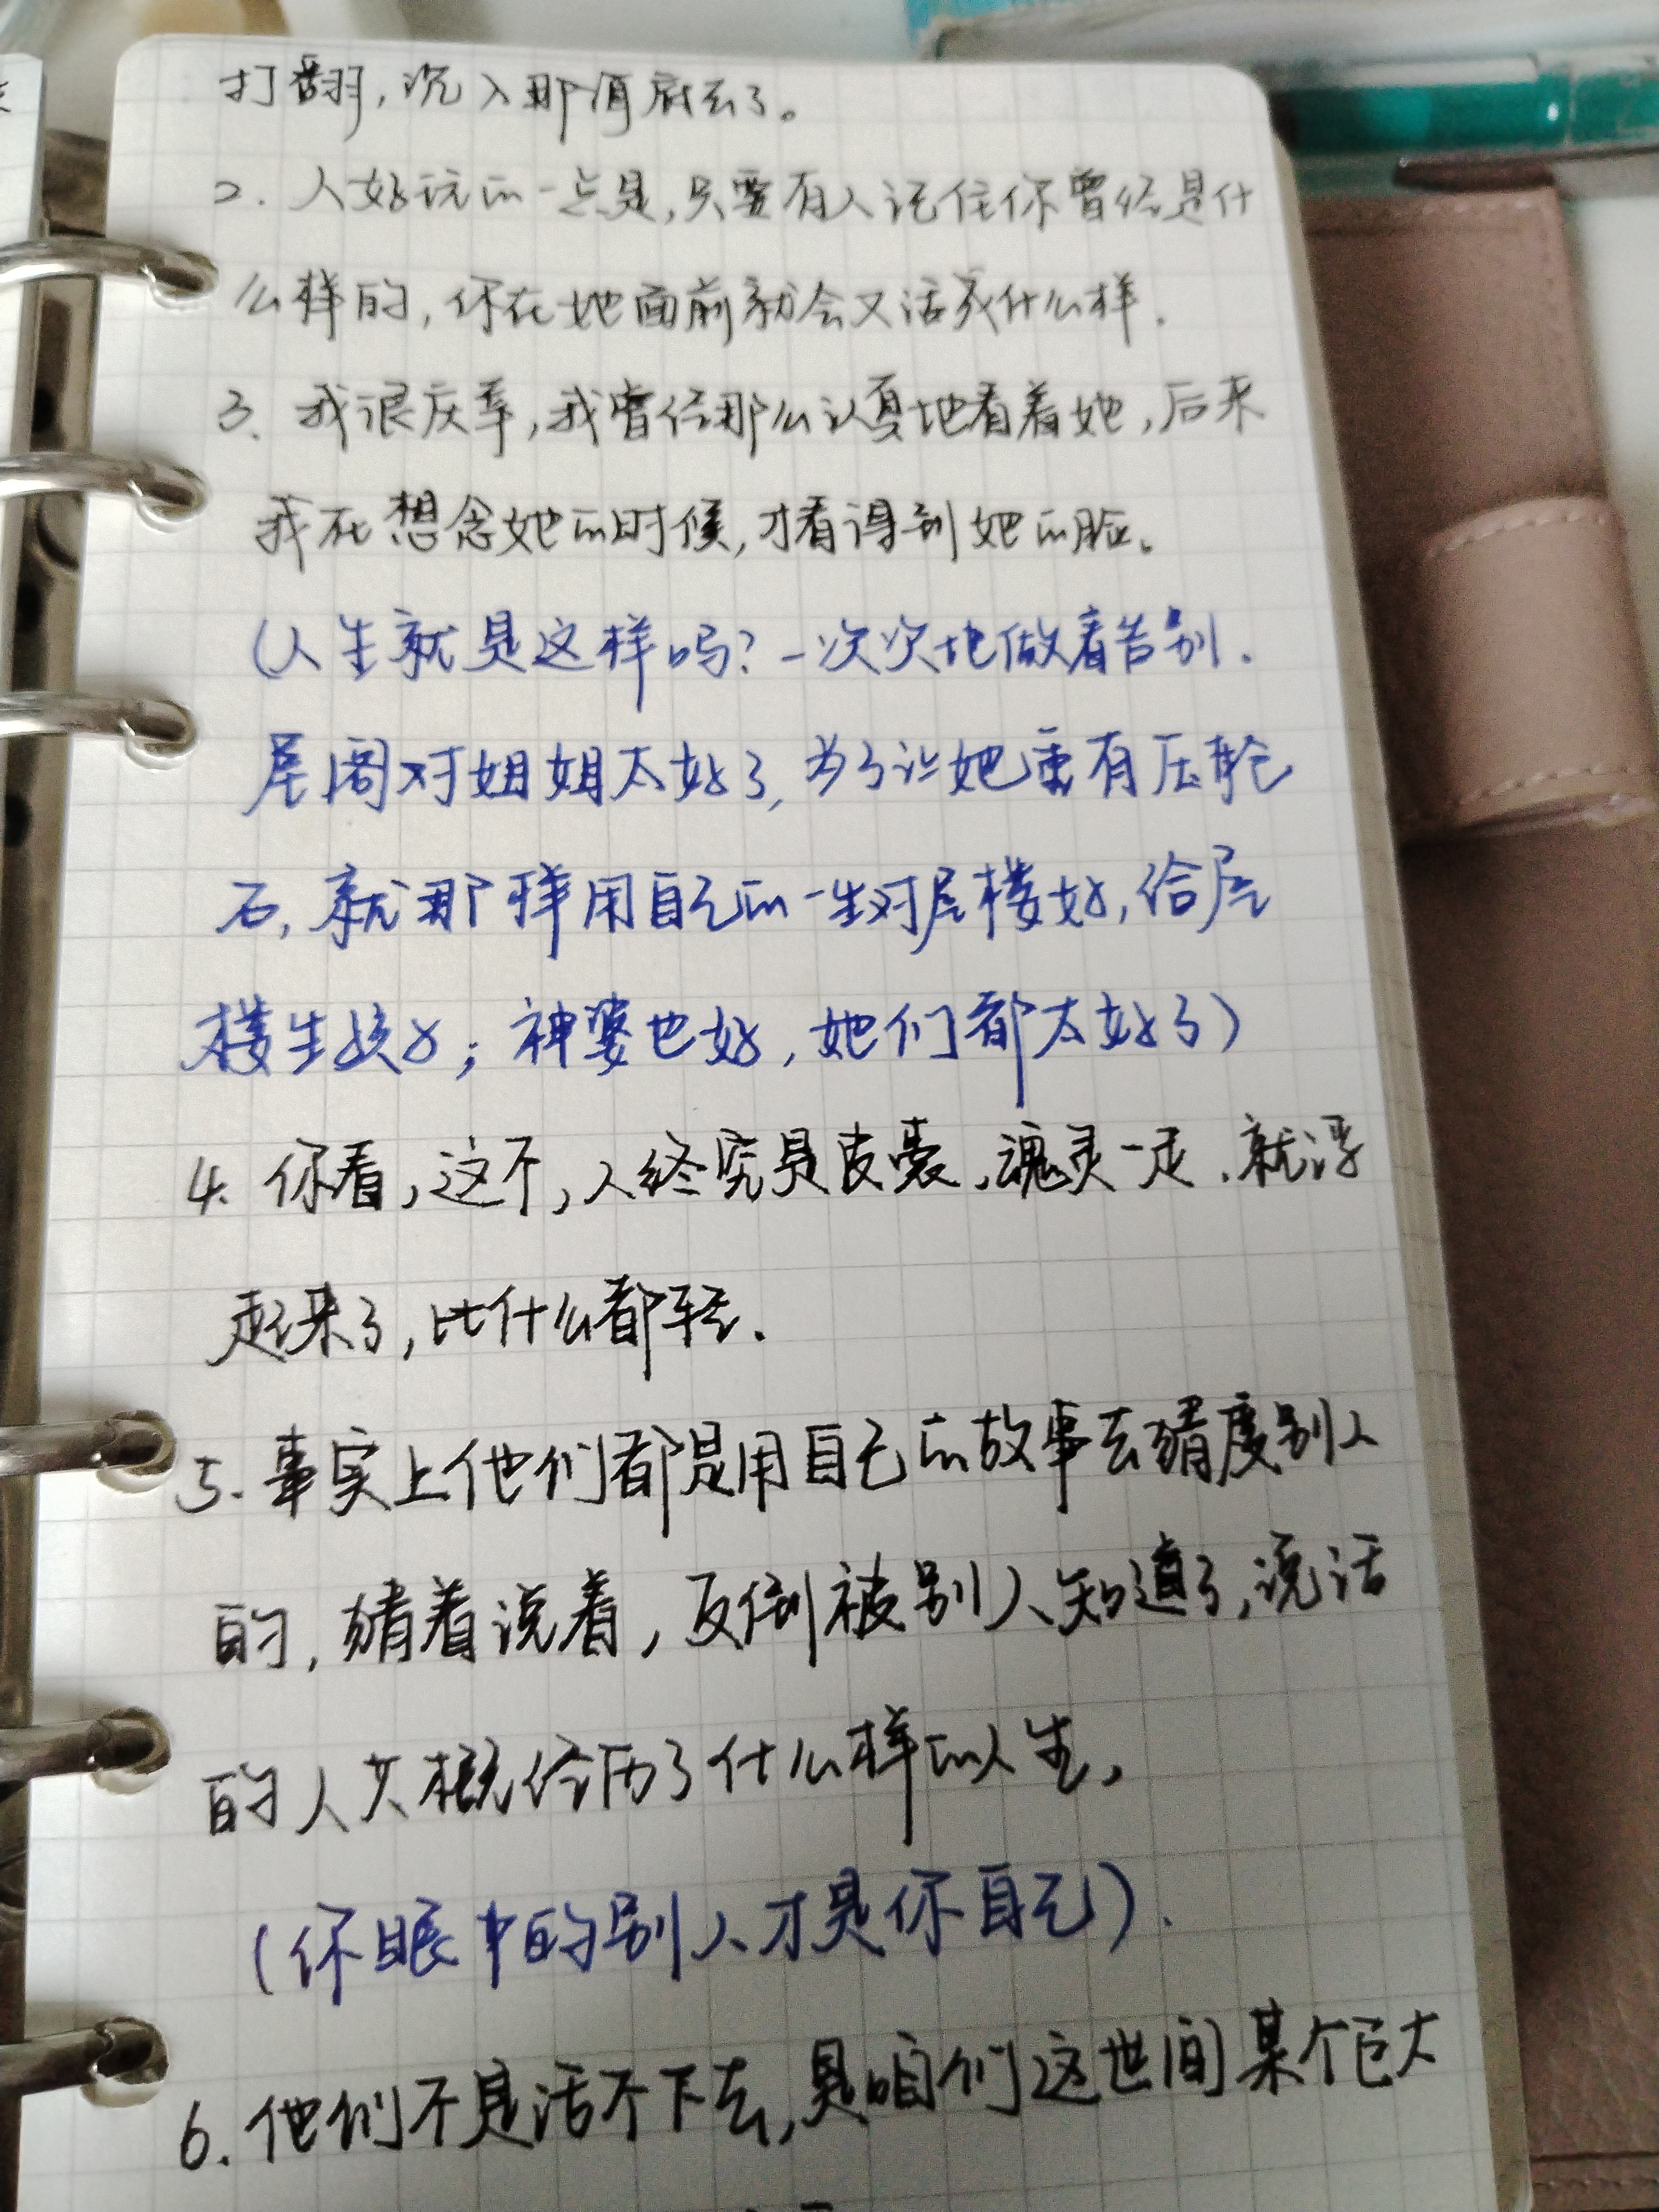 打翻，沉入那河底去了。
2. 人好玩的一点是，只要有人记住你曾经是什
么样的，你在她面前就会又活成什么样．
3. 我很庆幸，我曾经那么认真地看着她，后来
我在想念她的时候，才看得到她的脸。
（人生就是这样吗？一次次地做着告别．
屋阁对姐姐太好了，为了让她重有压舱
石，就那样用自己的一生对屋楼好，给屋
楼生孩子；神婆也好，她们都太好了）
4. 你看，这个，人终究是皮囊，魂灵一走，就浮
起来了，比什么都轻．
5. 事实上他们都是用自己的故事去猜度别人
的，猜着说着，反倒被别人知道了，说话
的人大概经历了什么样的人生，
（你眼中的别人才是你自己）．
6. 他们不是活不下去，是咱们这世间某个巨大